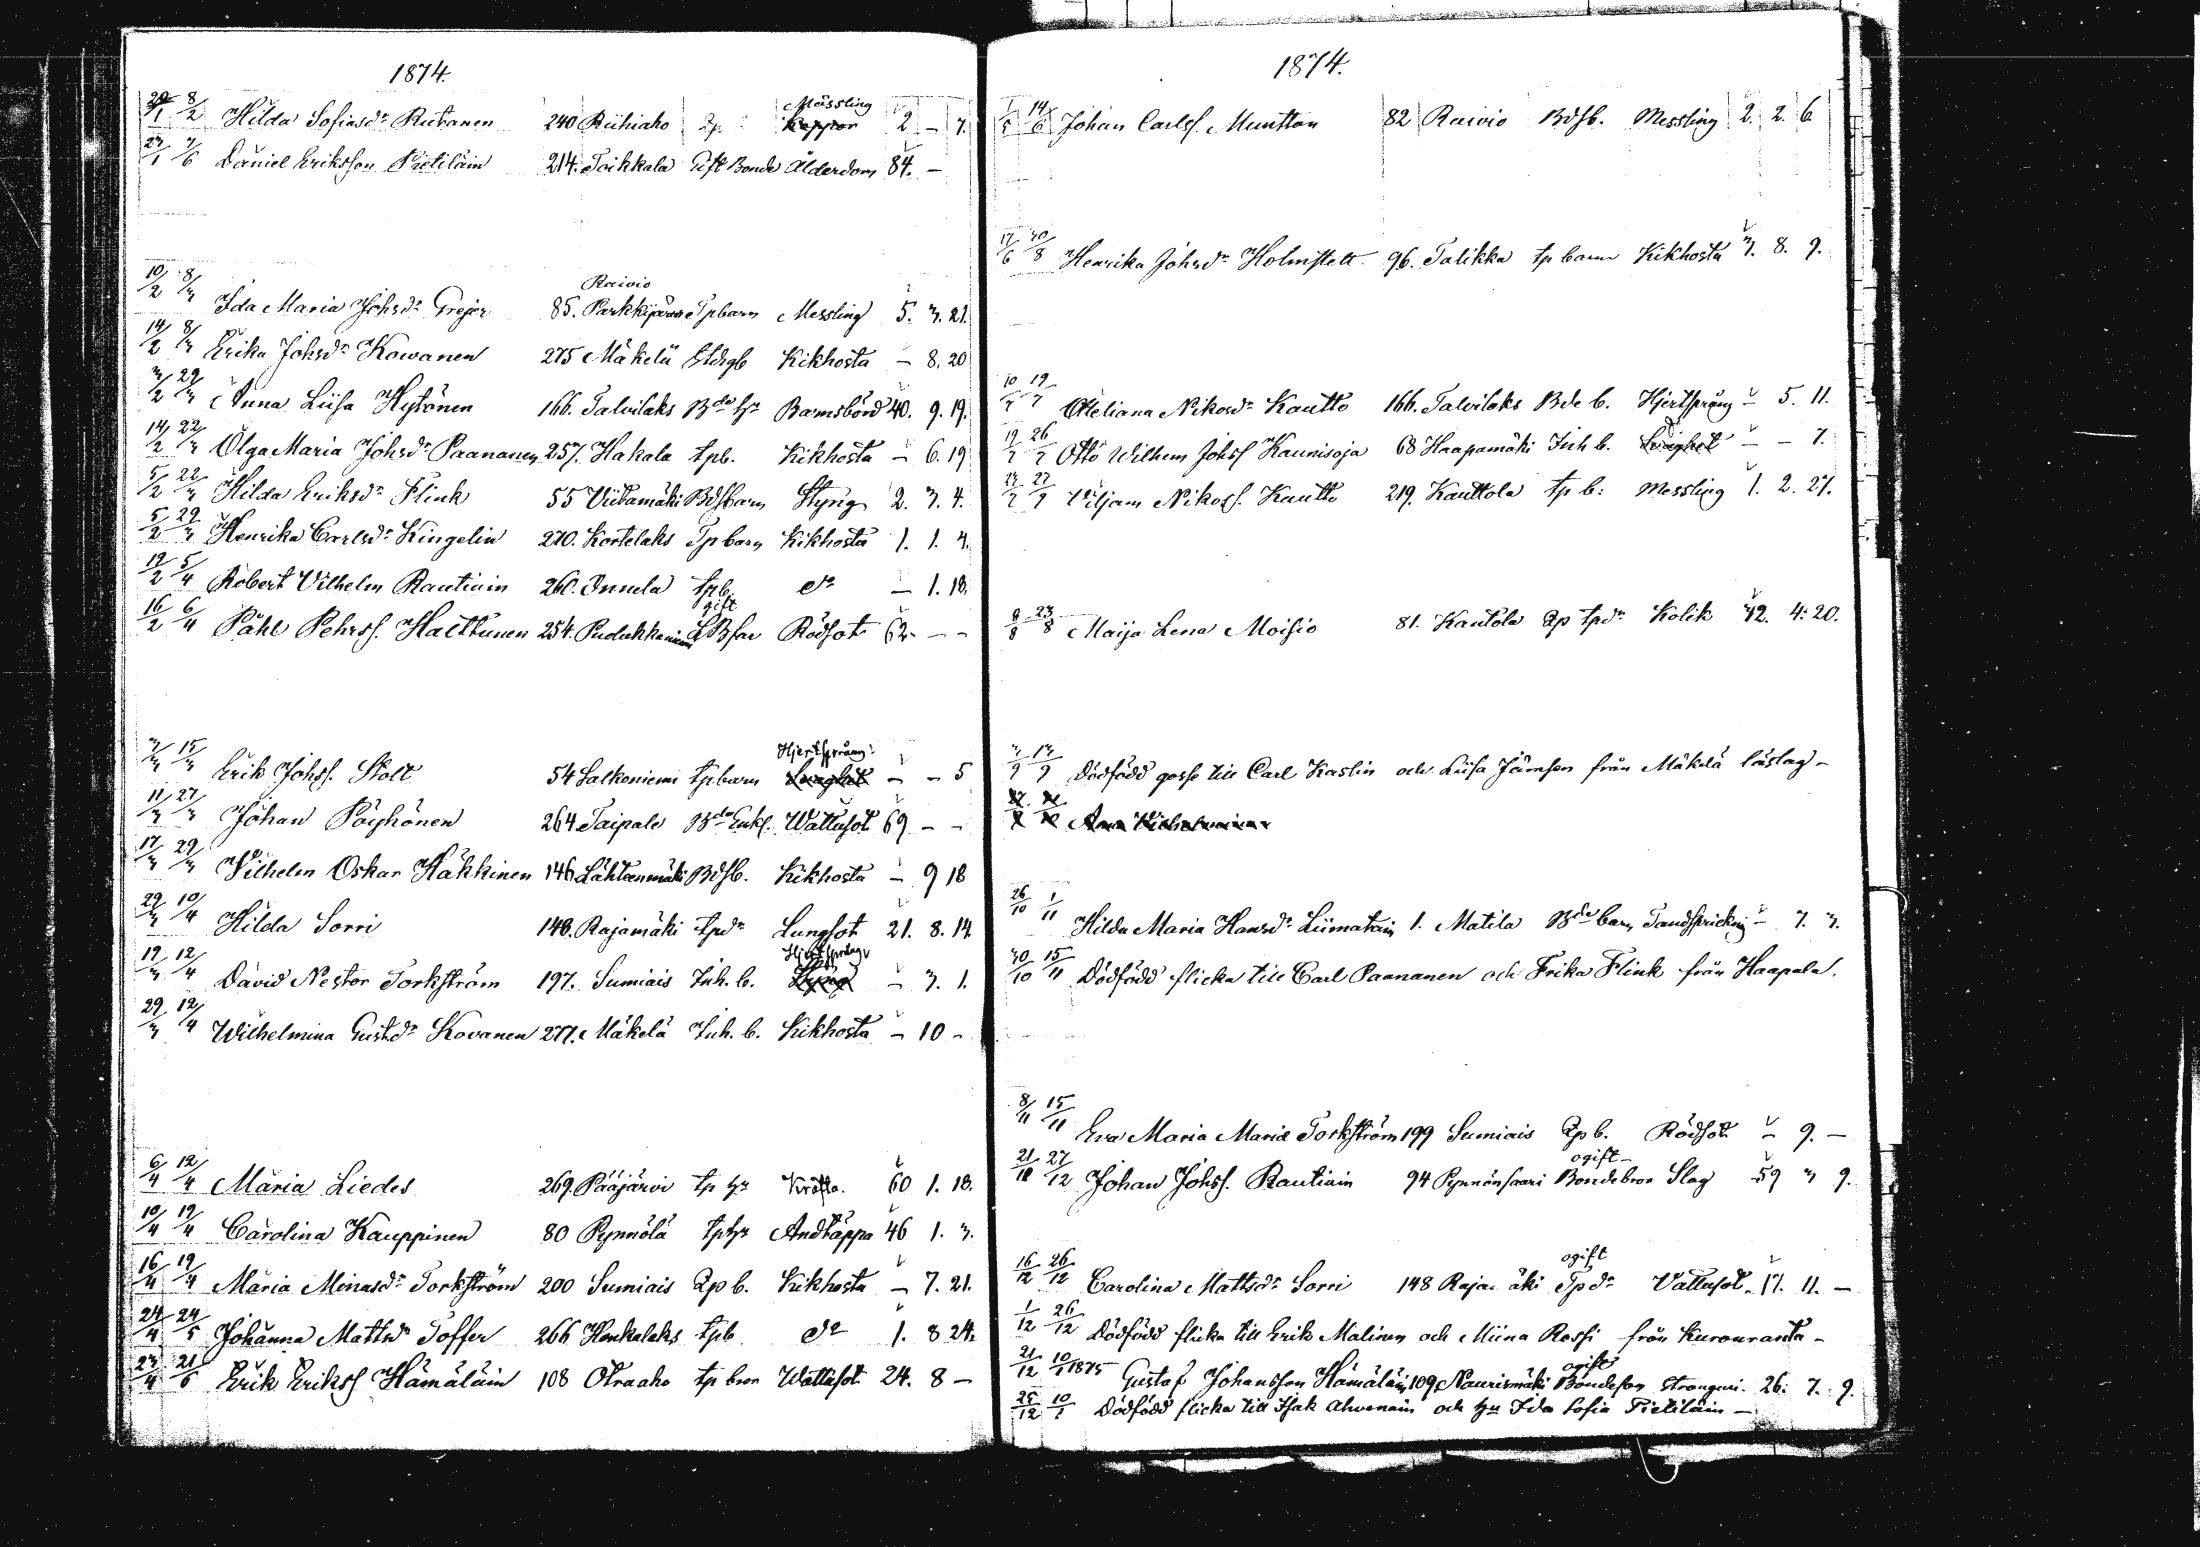 1874.
Mässling
29/1 8/2 Hilda Sofiasdr Riitanen 240 Riihiaho Koppor 2 – 7.
23/1 7/6 Daniel Eriksson Pietiläin 214. Toikkala Gift Bonde Ålderdom 84. –
Raivio
10/2 8/3 Ida Maria Johsdr Grejer 85. Parkkijärvi Tpbarn Messling 5. 3. 21.
14/2 8/3 Erika Johsdr Kowanen 275 Mäkelä Kikhosta – 8. 20
3/2 29/3 Anna Liisa Hytönen 166. Talvilaks Bde hu Barnsbörd 40. 9. 19.
14/2 22/3 Olga Maria Johsdr Paananen 257. Hakala tpb. Kikhosta – 6. 19
5/2 22/3 Hilda Eriksdr Flink 55 Viitamäki Bdsbarn Styng 2. 3. 4.
5/2 29/3 Henrika Carlsdr Kingelin 270. Kortelaks Tpbarn Kikhosta 1. 1. 4.
19/2 5/4 Robert Vilhelm Rautiain 260. Onnela tpb. do – 1. 18.
gift
16/2 6/4 Påhl Pehrss. Hatttunen 254. Rödsot 62. – –
Hjertsprång
3/3 15/3 Erik Johss. Stolt 54 Salkoniemi tpbarn Lunghot – – 5
11/3 27/3 Johan Pöyhönen 264 Taipale Bde Enkl. Wattusot 69 – –
17/3 29/3 Vilhelm Oskar Häkkinen 146 Lähteenmäki Bdsb. Kikhosta – 9 18
29/3 10/4 Hilda Sorri 148. Rajamäki tpdr Lungsot 21. 8. 14.
Hjertsprång
19/3 12/4 David Nestor Torkström 197. Sumiais Inh. b. Styng – 3. 1.
29/3 12/4 Wilhelmina Gustdr Kovanen 277. Mäkelä Inh. b. Kikhosta – 10 –
6/4 12/4 Maria Liedes 269. Pääjärvi tp hu Kräfta. 60 1. 18.
10/4 19/4 Carolina Kauppinen 80 Pynnölä tphu Andtäppa 46 1. 3.
16/4 19/4 Maria Minasdr Torkström 200 Sumiais Qp b. Kikhosta – 7. 21.
24/4 24/5 Johanna Mattsdr Toffer 266 Honkalaks tpb do 1. 8 24.
23/4 21/6 Erik Erikss Hämäläin 108 Otraaho tp bror Wattusot 24. 8 –
1874.
1/5 14/6 Johan Carlss. Muntton 82 Raivio Bdsb. Messling 2. 2. 6
17/6 30/8 Henrika Johsdr Holmstett 96. Talikka tp barn Kikhosta 3. 8. 9.
10/7 19/7 Oteliana Nikosdr Kautto 166. Talvilaks Bde b. Hjertsprång – 5. 11.
19/7 26/7 Otto Wilhem Johss Kaunisoja 68 Haapamäki Inh b. – – 7.
27/7 Viljam Nikoss. Kautto 219. Kauttola tp b: Messling 1. 2. 27.
9/8 23/8 Maija Lena Moisio 81. Kautola Qp tpdr Kolik 42. 4. 20.
3/9 13/9 Dödfödd gosse till Carl Kaslin och Liisa Jämsen från Mäkelä läslag –
26/10 1/11 Hilda Maria Hansdr Liimatain 1. Matila Bde barn Tandspricking – 7. 3.
30/10 15/11 Dödfödd flicka till Carl Paananen och Frika Flink från Haapala.
8/11 15/11 Eva Maria Mariæ Torkström 199 Sumiais Qp b. Rödsot – 9. –
ogift –
21/12 27/12 Johan Johss. Rautiain 94 Pynnönsaari Bondebror Slag 59 3 9.
ogift
16/12 26/12 Carolina Mattsdr Sorri 148 Raja äki Tpdr Vattusot 17. 11. –
1/12 26/12 Dödfödd flicka till Erik Malinen och Miina Rossi från Kuronranta –
ogift
21/12 10/1 1875 Gustaf Johansson Hämäläin 109 Naurismäki Bondeson Stranguri. 26. 7. 9.
25/12 10/1 Dödfödd flicka till Isak Ahvenain och hu Ida Sofia Pietiläin –